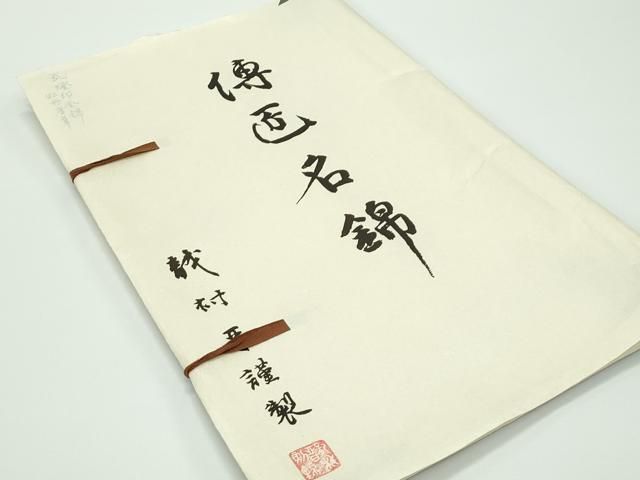 傳匠名錦
龍村 謹製